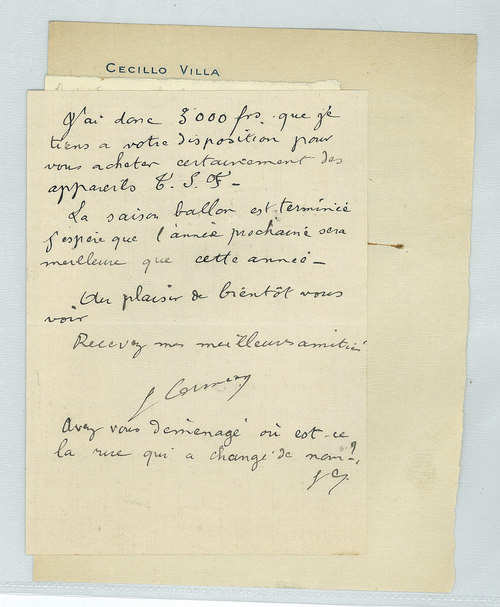 CECILLO VILLA
J'ai donc 3000 frs. que je
tiens a votre disposition pour
vous acheter certainement des
appareils T. S. F -
La saison ballon est terminée
j'espère que l'année prochaine sera
meilleure que cette année -
Au plaisir de bientôt vous
voir
Recevez mes meilleures amitiés
Avez vous déménagé où est-ce
la rue qui a changé de nom?